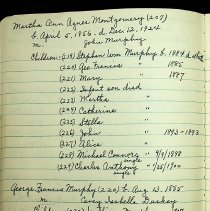 Martha Ann Agnes Montgomery (207)
b. April 5, 1856. d. Dec 12, 1924
m. John Murphy
Children: (219) Stephen Murphy b. 1884 d.
(220) Geo. Francis " 1885
(221) Mary " 1887
(222) Infant son died
(223) Martha "
(224) Catherine "
(225) Stella "
(226) John " 1893 - 1898
(227) Alice "
(228) Michael Connors " 9/9/1898
single
(229) Charles Anthony " 4/25/1900
single
George Francis Murphy (220) b. Aug 13. 1885
m. Isabella